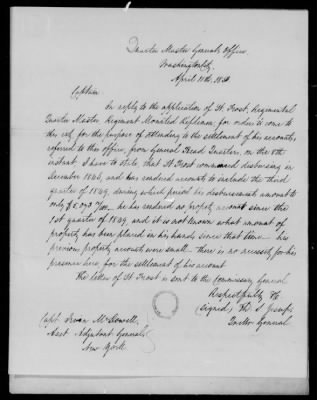 Quarter Master Generals Office
Washington City
April 11th, 1850
Captain
In reply to the application of Lt Frost, Regimental
Quarter Master, Regiment Mounted Riflemen, for orders to come to
this city for the purpose of attending to the settlement of his accounts,
referred to this office, from General Head Quarters, on the 8th
instant, I have to state that Lt Frost commenced disbursing in
December 1846, and has rendered accounts to include the third
quarter of 1849, during which period his disbursements amount to
only $ he has rendered no property account since the
1st quarter of 1849, and it is not known what amount of
property has been placed in his hands since that time — his
previous property accounts were small — There is no necessity for his
presence here for the settlement of his account.
The letter of Lt Frost is sent to the Commissary General
Respectfully &c
(Signed) Th. S Jesup,
Qr Mr General
Capt. Irvin McDowell,
Asst Adjutant General,
New York